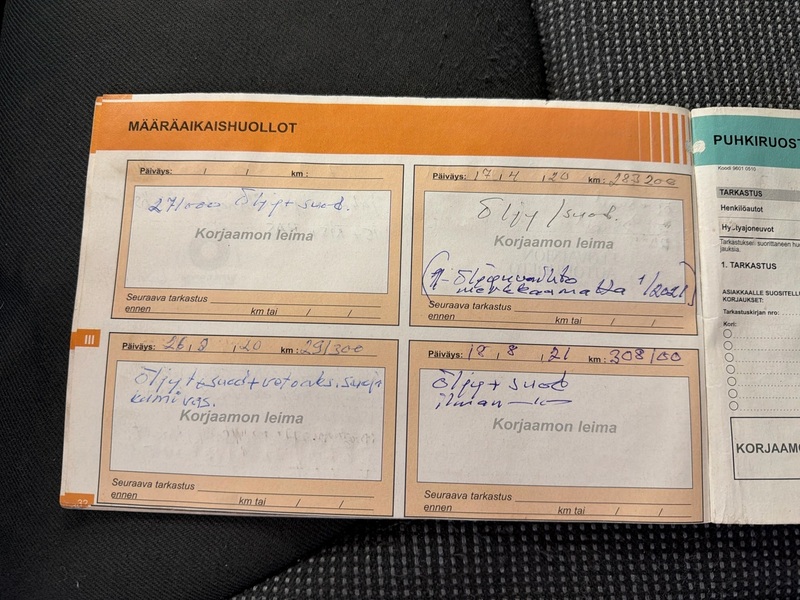 MÄÄRÄAIKAISHUOLLOT
Päiväys: / / km :
271000 Öljy + suod.
Korjaamon leima
Seuraava tarkastus
ennen km tai / /
Päiväys: 17 , 4 , 20 km : 283200
Öljy / suod.
Korjaamon leima
Öljynvaihto
merkkaamatta 1/2021
Seuraava tarkastus
ennen km tai / /
III
Päiväys: 26 , 8 , 20 km : 291300
Öljyt + suod + vetoniv. suoja
kumi vas.
Korjaamon leima
Seuraava tarkastus
ennen km tai / /
Päiväys: 18 , 8 , 21 km : 308100
Öljy + suod
ilman
Korjaamon leima
Seuraava tarkastus
ennen km tai / /
32
PUHKIRUOST
Kondi 9601 0910
TARKASTUS
Henkilöautot
Hyötyajoneuvot
Tarkastuksen suorittaneen
jauksia.
1. TARKASTUS
ASIAKKAALLE SUOSITELLU
KORJAUKSET:
Tarkastuskirjan nro:
Kori:
KORJAAMO